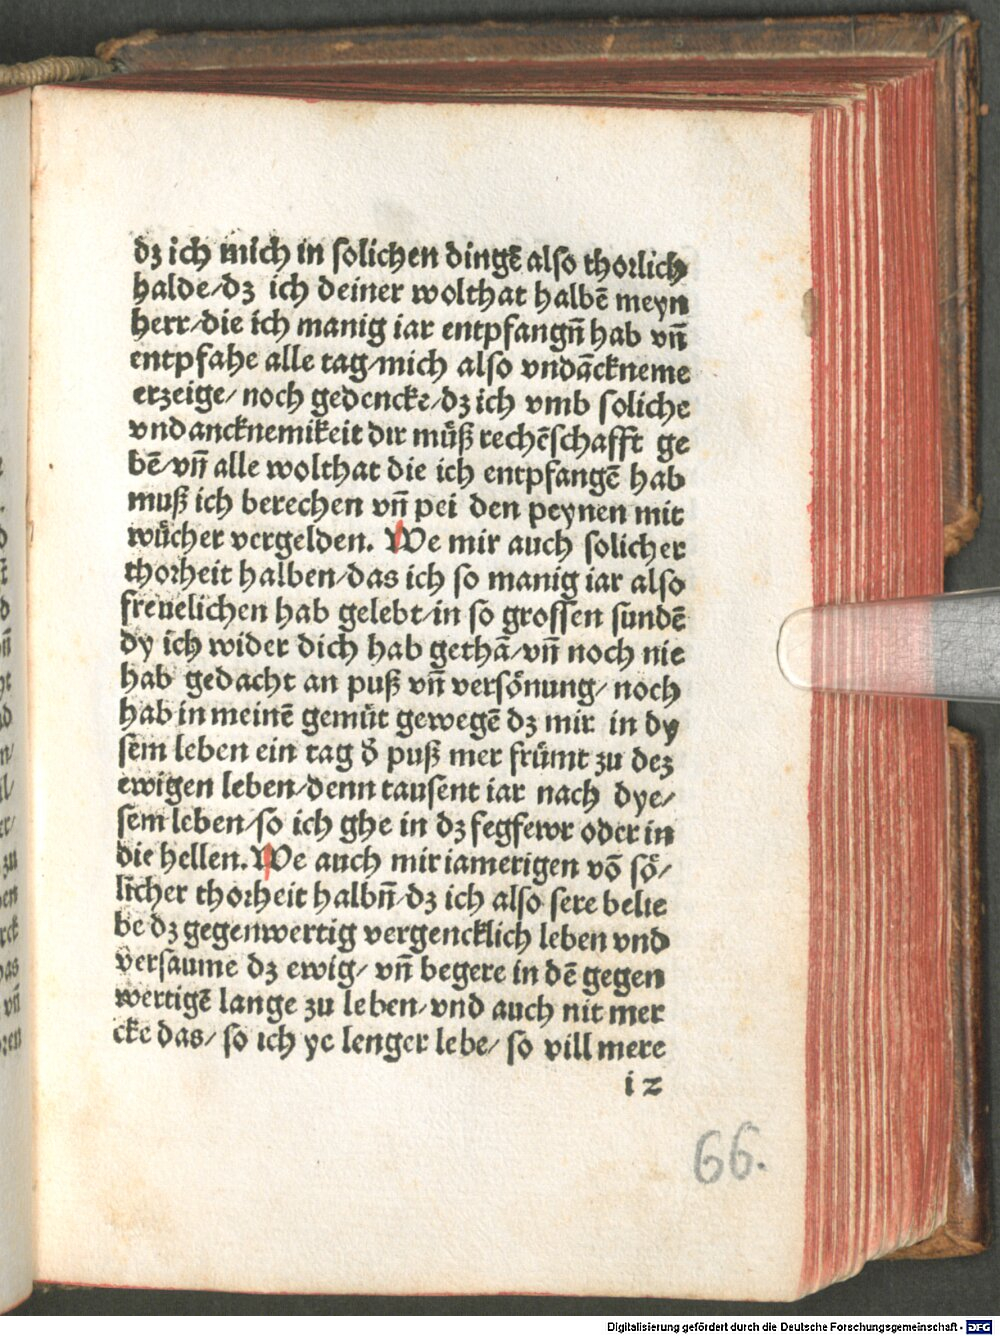 dz ich mich in solichen dingē also thorlich
halde/dz ich deiner wolthat halbē meyn
herr/die ich manig iar entpfangn̄ hab vn̄
entpfahe alle tag/mich also vndāckneme
erzeige/ noch gedencke/dz ich vmb soliche
vndancknemikeit dir mūß rechēschafft ge
bē/vn̄ alle wolthat die ich entpfangē hab
muß ich berechen vn̄ pei den peynen mit
wůcher vergelden. We mir auch solicher
thorheit halben/das ich so manig iar also
freuelichen hab gelebt/in so grossen sundē
dy ich wider dich hab gethā/vn̄ noch nie
hab gedacht an puß vn̄ versönung/ noch
hab in meinē gemüt gewegē dz mir in dy
sem leben ein tag d̄ puß mer frümt zu dez
ewigen leben/denn tausent iar nach dye/
sem leben/so ich ghe in dz fegfewr oder in
die hellen. We auch mir iamerigen vō sö/
licher thorheit halbn̄/dz ich also sere belie
be dz gegenwertig vergencklich leben vnd
versaume dz ewig/ vn̄ begere in dē gegen
wertigē lange zu leben/vnd auch nit mer
cke das/ so ich ye lenger lebe/ so vill mere
i 2
66.
Digitalisierung gefördert durch die Deutsche Forschungsgemeinschaft - DFG